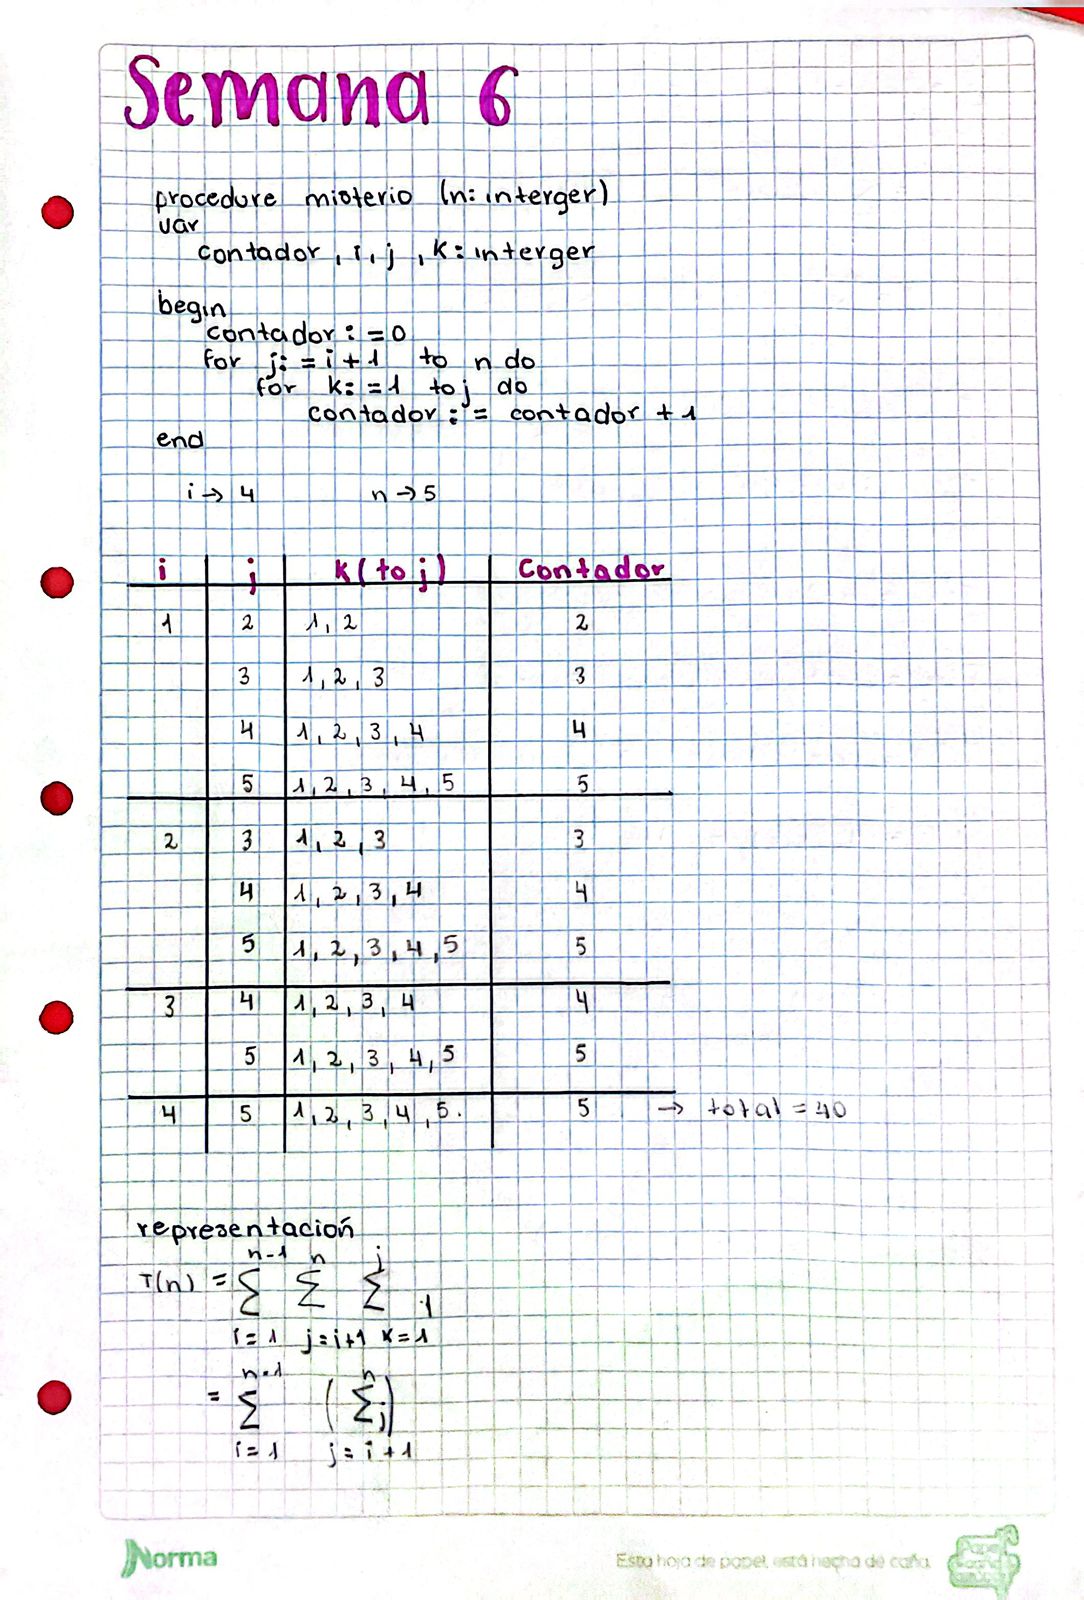 Semana 6
procedure misterio (n: interger)
var
contador, i, j, k: interger
begin
contador := 0
for j: = i + 1 to n do
for k: = 1 to j do
contador := contador + 1
end
i → 4 n → 5
i j k (to j) Contador
1 2 1, 2 2
3 1, 2, 3 3
4 1, 2, 3, 4 4
5 1, 2, 3, 4, 5 5
2 3 1, 2, 3 3
4 1, 2, 3, 4 4
5 1, 2, 3, 4, 5 5
3 4 1, 2, 3, 4 4
5 1, 2, 3, 4, 5 5
4 5 1, 2, 3, 4, 5. 5 → total = 40
representación
n-1 n j
T(n) = Σ Σ Σ 1
i = 1 j = i+1 k = 1
n-1 n
= Σ (Σ j)
i = 1 j = i + 1
Norma
Esta hoja de papel, está hecha de caña.